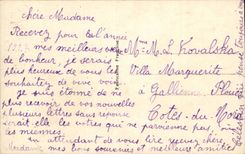 Chère Madame
Recevez pour cet année
mes meilleurs vœux
de bonheur, je serais
plus heureuse de vous les
souhaiter de vive voix
Je suis étonné de ne
plus recevoir de vos nouvelles
plusieurs lettres sans réponse
serait elle les votres qui ne parvienne pas, ou
les miennes.
En attendant de vous lire recevez chère
Madame mes bons souvenirs et meilleure amitié
Mme M. L. Kovalska
Villa Marguerite
à Gallienne Plou
Cotes du Nord